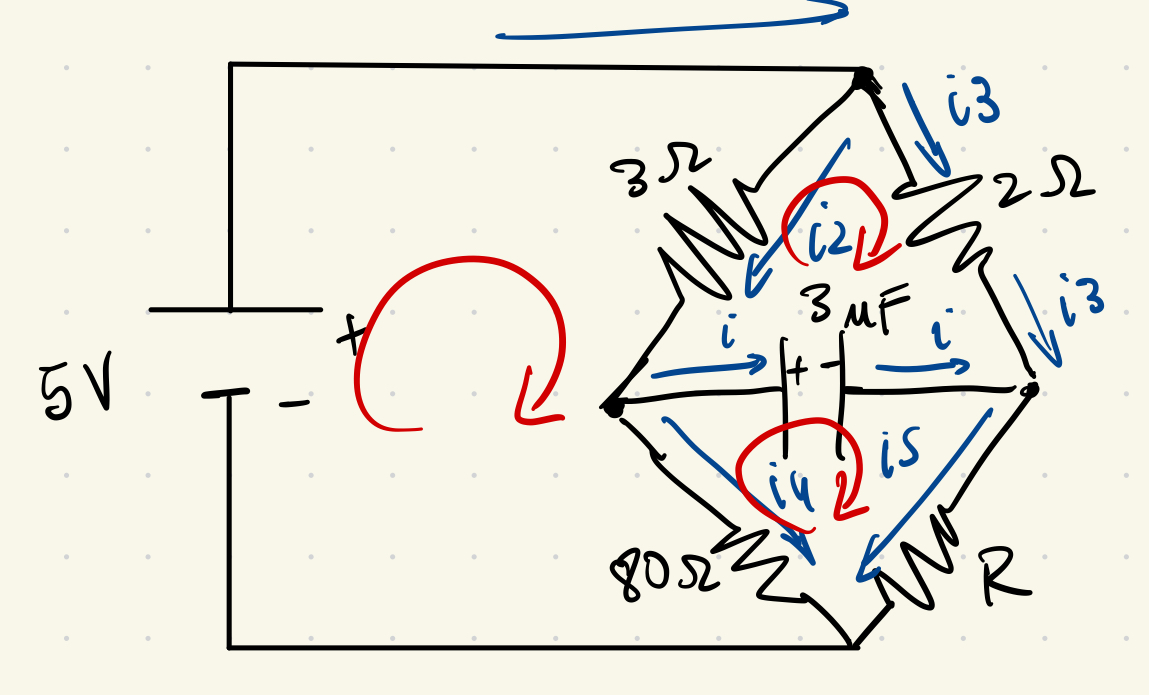 i3
3Ω
2Ω
i2
i3
3 μF
+
i
i
+ -
5V
-
i5
i4
80Ω
R